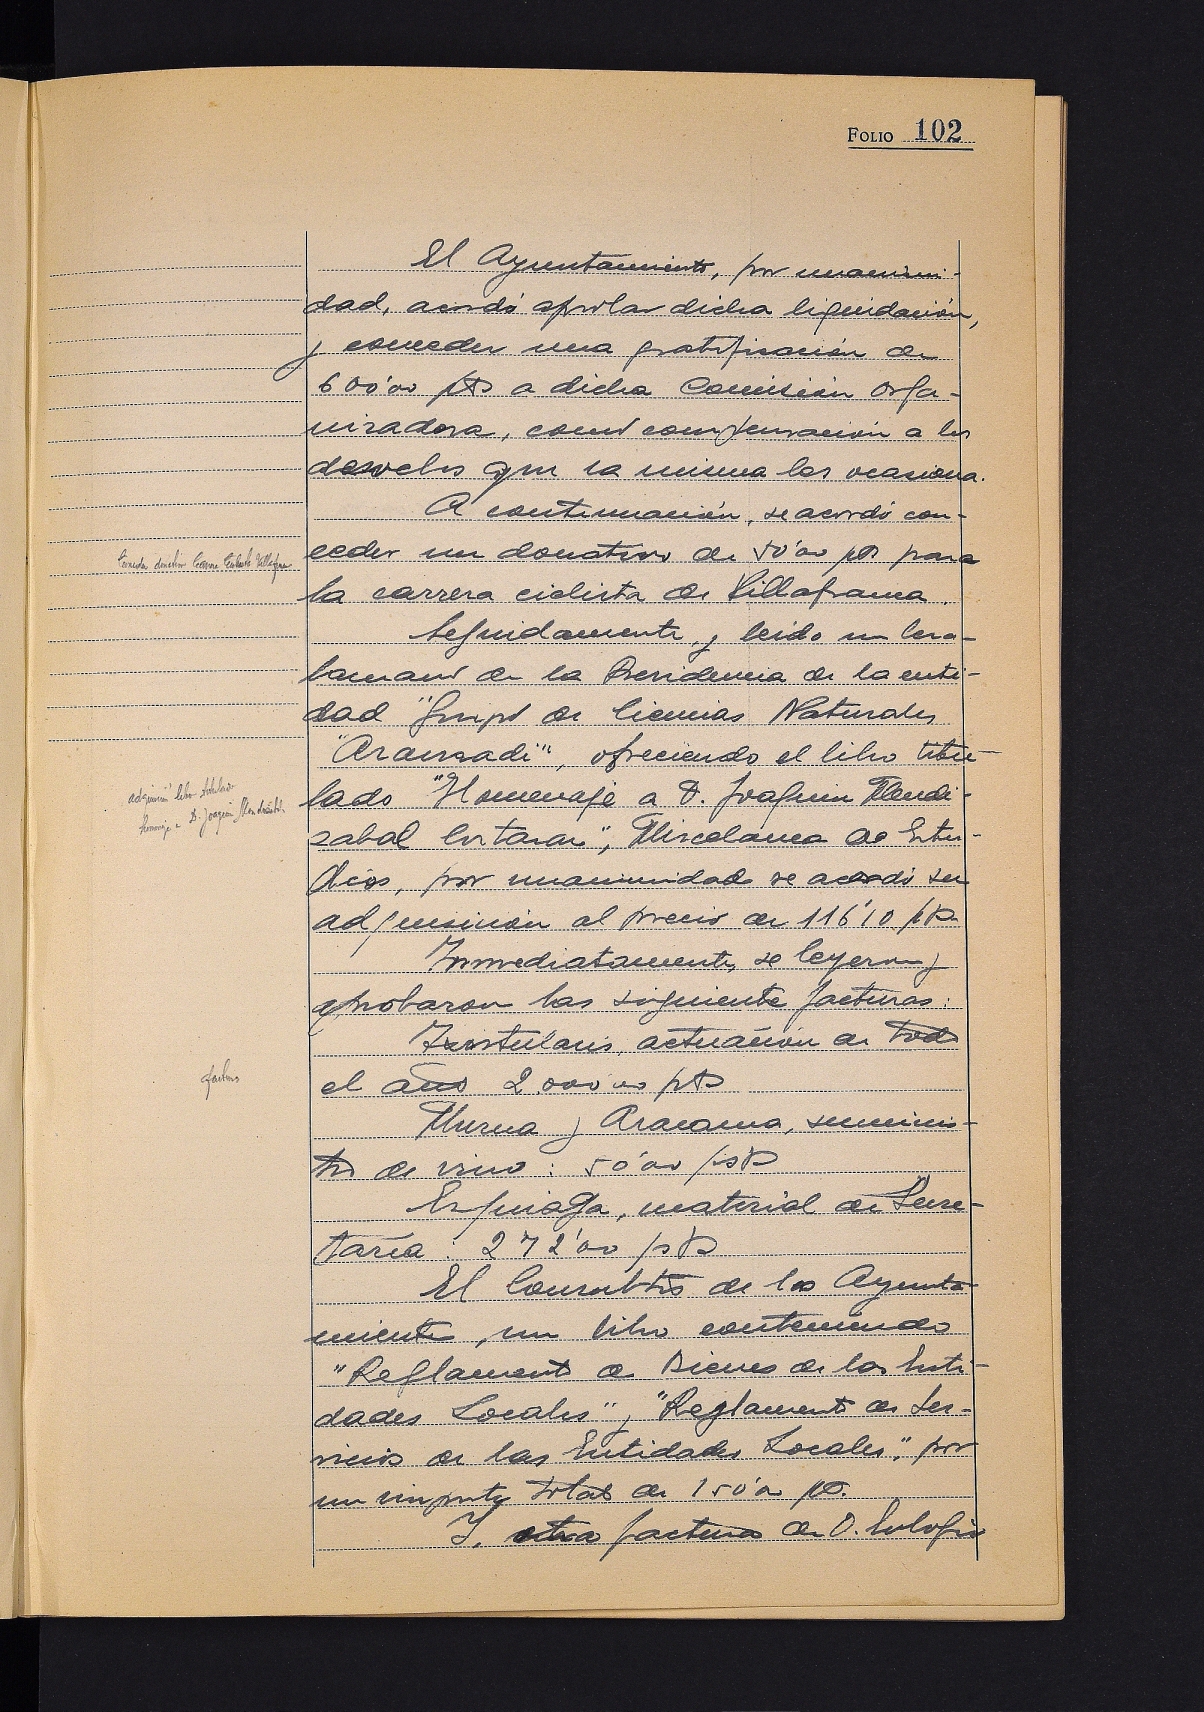 FOLIO 102
El Ayuntamiento, por unanimi-
dad, acordó aprobar dicha liquidación,
y conceder una gratificación de
600'00 pts a dicha Comisión Orga-
nizadora, como compensación a los
desvelos que la misma les ocasiona.
A continuación, se acordó con-
ceder un donativo de 50'00 pts para
la carrera ciclista de Villafranca.
Seguidamente, y leído un besa-
lamano de la Presidencia de la enti-
dad "Grupo de Ciencias Naturales
"Aranzadi", ofreciendo el libro titu-
lado "Homenaje a D. Joaquin Mendi-
zabal Cortazar", Miscelanea de Estu-
dios, por unanimidad se acordó su
adquisición al precio de 116'10 pts
Inmediatamente, se leyeron y
aprobaron las siguiente facturas:
Txistularis, actuación de todo
el año 2.000'00 pts
Murua y Aracama, suminis-
tro de vino: 50'00 pts
Eguiaga, material de Secre-
taría: 272'00 pts
El Consultor de los Ayunta-
mientos, un libro conteniendo
"Reglamento de Bienes de las Enti-
dades Locales" y "Reglamento de Ser-
vicios de las Entidades Locales", por
un importe total de 150'00 pts.
Y, otra factura de D. Eulogio
Conceder donativo Carrera Ciclista Villafranca
adquisición libro titulado
Homenaje a D. Joaquín Mendizábal
facturas